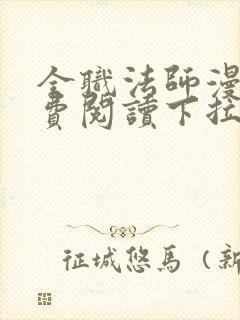 全職法師漫
費閱讀下拉
征城悠馬（新